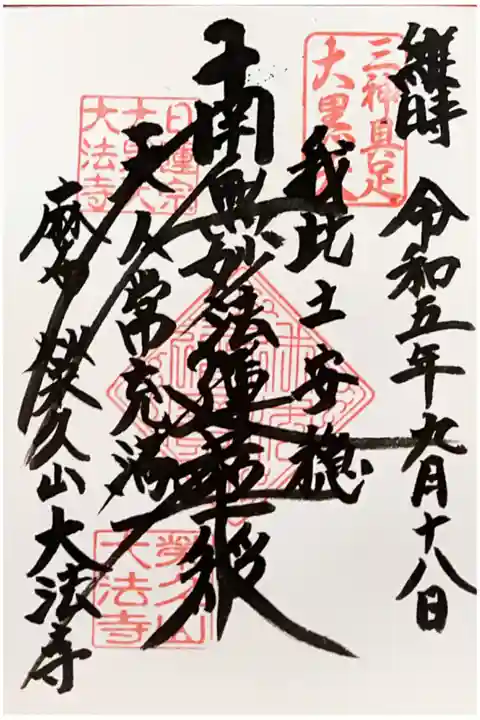 維時 令和五年九月十八日
三神具足
大黒
我此土安穏
南無妙法蓮華経
天人常充満
日蓮宗
大黒天
大法寺
麻布 榮久山大法寺
榮久山
大法寺